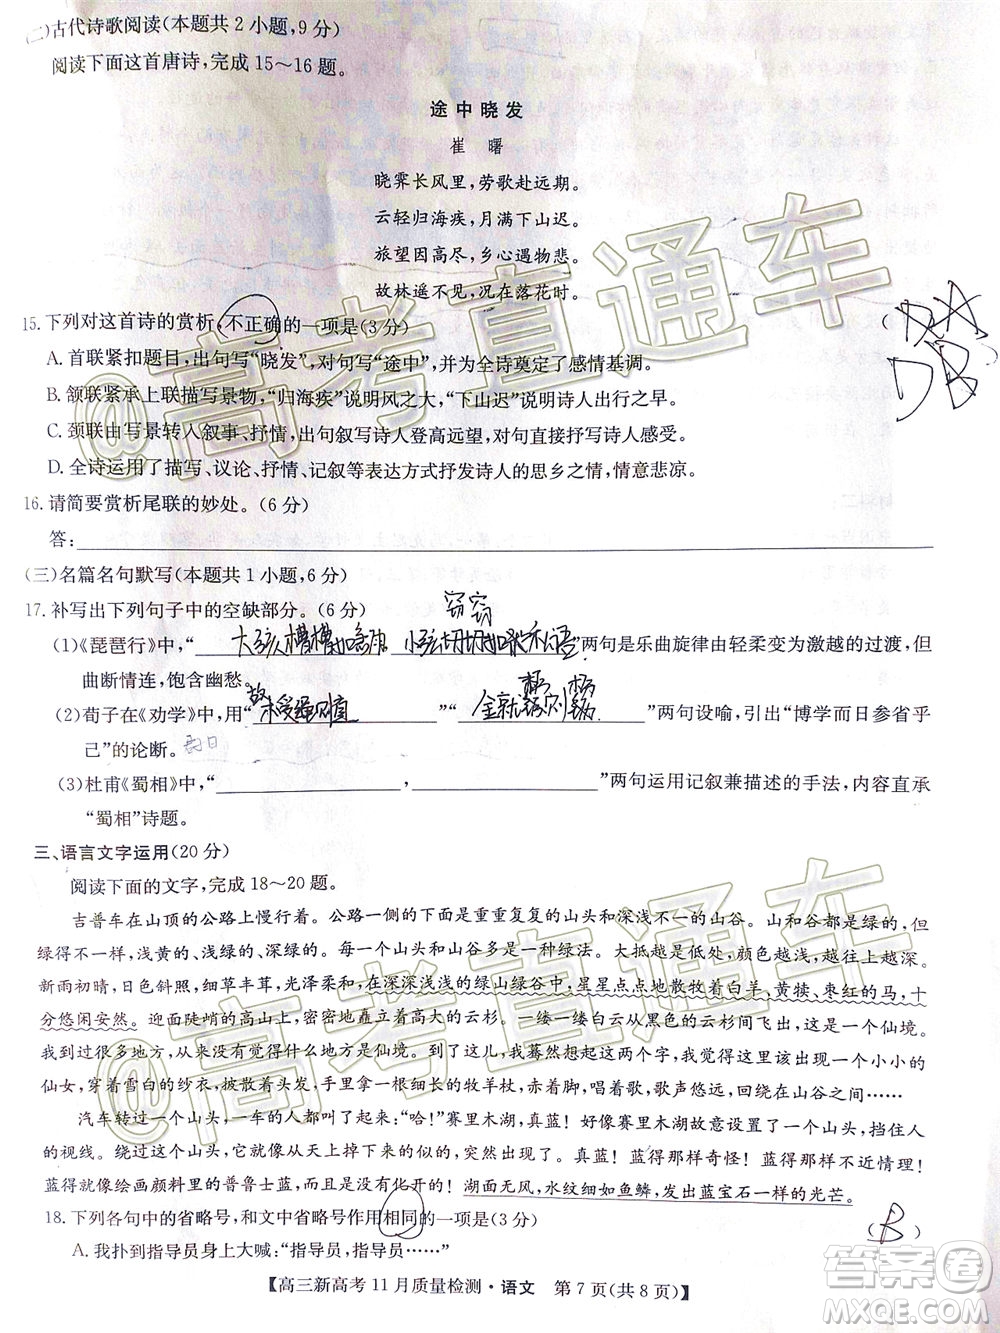 (二)古代诗歌阅读(本题共2小题,9分)
阅读下面这首唐诗,完成15～16题。
途中晓发
崔曙
晓霁长风里,劳歌赴远期。
云轻归海疾,月满下山迟。
旅望因高尽,乡心遇物悲。
故林遥不见,况在落花时。
15.下列对这首诗的赏析,不正确的一项是(3分)
A.首联紧扣题目,出句写“晓发”,对句写“途中”,并为全诗奠定了感情基调。
B.颔联紧承上联描写景物,“归海疾”说明风之大,“下山迟”说明诗人出行之早。
C.颈联由写景转入叙事、抒情,出句叙写诗人登高远望,对句直接抒写诗人感受。
D.全诗运用了描写、议论、抒情、记叙等表达方式抒发诗人的思乡之情,情意悲凉。
16.请简要赏析尾联的妙处。(6分)
答:
(三)名篇名句默写(本题共1小题,6分)
17.补写出下列句子中的空缺部分。(6分)
窃窃
(1)《琵琶行》中,“大弦嘈嘈如急雨,小弦切切如私语”两句是乐曲旋律由轻柔变为激越的过渡,但
曲断情连,饱含幽愁。
(2)荀子在《劝学》中,用“故木受绳则直”“金就砺则利”两句设喻,引出“博学而日参省乎
己”的论断。
(3)杜甫《蜀相》中,“ , ”两句运用记叙兼描述的手法,内容直承
“蜀相”诗题。
三、语言文字运用(20分)
阅读下面的文字,完成18～20题。
吉普车在山顶的公路上慢行着。公路一侧的下面是重重复复的山头和深浅不一的山谷。山和谷都是绿的,但
绿得不一样,浅黄的、浅绿的、深绿的。每一个山头和山谷多是一种绿法。大抵越是低处,颜色越浅;越往上,越深。
新雨初晴,日色斜照,细草丰茸,光泽柔和,在深深浅浅的绿山绿谷中,星星点点地散牧着白羊、黄犊、枣红的马,十
分悠闲安然。迎面陡峭的高山上,密密地矗立着高大的云杉。一缕一缕白云从黑色的云杉间飞出,这是一个仙境。
我到过很多地方,从来没有觉得什么地方是仙境。到了这儿,我蓦然想起这两个字,我觉得这里该出现一个小小的
仙女,穿着雪白的纱衣,披散着头发,手里拿一根细长的牧羊杖,赤着脚,唱着歌,歌声悠远,回绕在山谷之间……
汽车转过一个山头,一车的人都叫了起来:“哈!”赛里木湖,真蓝!好像赛里木湖故意设置了一个山头,挡住人
的视线。绕过这个山头,它就像从天上掉下来的似的,突然出现了。真蓝!蓝得那样奇怪!蓝得那样近于不近情理!
蓝得就像绘画颜料里的普鲁士蓝,而且是没有化开的!湖面无风,水纹细如鱼鳞,发出蓝宝石一样的光芒。
18.下列各句中的省略号,和文中省略号作用相同的一项是(3分) (B)
A.我扑到指导员身上大喊:“指导员,指导员……”
【高三新高考11月质量检测·语文 第7页(共8页)】
@高考直通车
@高考直通车
答案圈
MXQE.COM